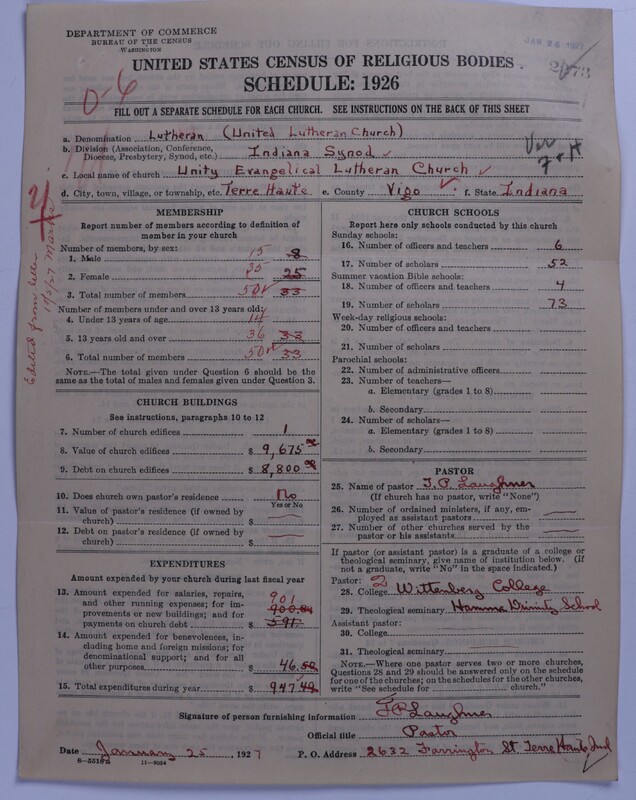 DEPARTMENT OF COMMERCE
BUREAU OF THE CENSUS
WASHINGTON
JAN 26 1927
UNITED STATES CENSUS OF RELIGIOUS BODIES
SCHEDULE: 1926
0-6
FILL OUT A SEPARATE SCHEDULE FOR EACH CHURCH. SEE INSTRUCTIONS ON THE BACK OF THIS SHEET
a. Denomination Lutheran (United Lutheran Church)
b. Division (Association, Conference, Diocese, Presbytery, Synod, etc.) Indiana Synod
c. Local name of church Unity Evangelical Lutheran Church
d. City, town, village, or township, etc. Terre Haute e. County Vigo f. State Indiana
Edited from letter
MEMBERSHIP
Report number of members according to definition of
member in your church
Number of members, by sex:
1. Male 15 8
2. Female 35 25
3. Total number of members 50 33
Number of members under and over 13 years old:
4. Under 13 years of age 14
5. 13 years old and over 36 33
6. Total number of members 50 33
NOTE.—The total given under Question 6 should be
same as the total of males and females given under Question 3.
CHURCH BUILDINGS
See instructions, paragraphs 10 to 12
7. Number of church edifices 1
8. Value of church edifices $ 9,675 00
9. Debt on church edifices $ 8,800 00
10. Does church own pastor's residence No
Yes or No
11. Value of pastor's residence (if owned by
church) $
12. Debt on pastor's residence (if owned by
church) $
EXPENDITURES
Amount expended by your church during last fiscal year
13. Amount expended for salaries, repairs,
and other running expenses; for im-
provements or new buildings; and for
payments on church debt $ 901
14. Amount expended for benevolences, in-
cluding home and foreign missions; for
denominational support; and for all
other purposes $ 46.50
15. Total expenditures during year $ 947.49
CHURCH SCHOOLS
Report here only schools conducted by this church
Sunday schools:
16. Number of officers and teachers 6
17. Number of scholars 52
Summer vacation Bible schools:
18. Number of officers and teachers 4
19. Number of scholars 73
Week-day religious schools:
20. Number of officers and teachers
21. Number of scholars
Parochial schools:
22. Number of administrative officers
23. Number of teachers—
a. Elementary (grades 1 to 8)
b. Secondary
24. Number of scholars—
a. Elementary (grades 1 to 8)
b. Secondary
PASTOR
25. Name of pastor F. P. Laughner
(If church has no pastor, write "None")
26. Number of ordained ministers, if any, em-
ployed as assistant pastors
27. Number of other churches served by the
pastor or his assistants
If pastor (or assistant pastor) is a graduate of a college or
theological seminary, give name of institution below. (If
not a graduate, write "No" in the space indicated.)
Pastor: 2
28. College Wittenberg College
29. Theological seminary Hamma Divinity School
Assistant pastor:
30. College
31. Theological seminary
NOTE.—Where one pastor serves two or more churches,
Questions 28 and 29 should be answered only on the schedule
for one of the churches; on the schedules for the other churches,
write "See schedule for church."
Signature of person furnishing information F P Laughner
Official title Pastor
Date January 25, 1927 P. O. Address 2632 Farrington St Terre Haute Ind
8-5518a 11-9034